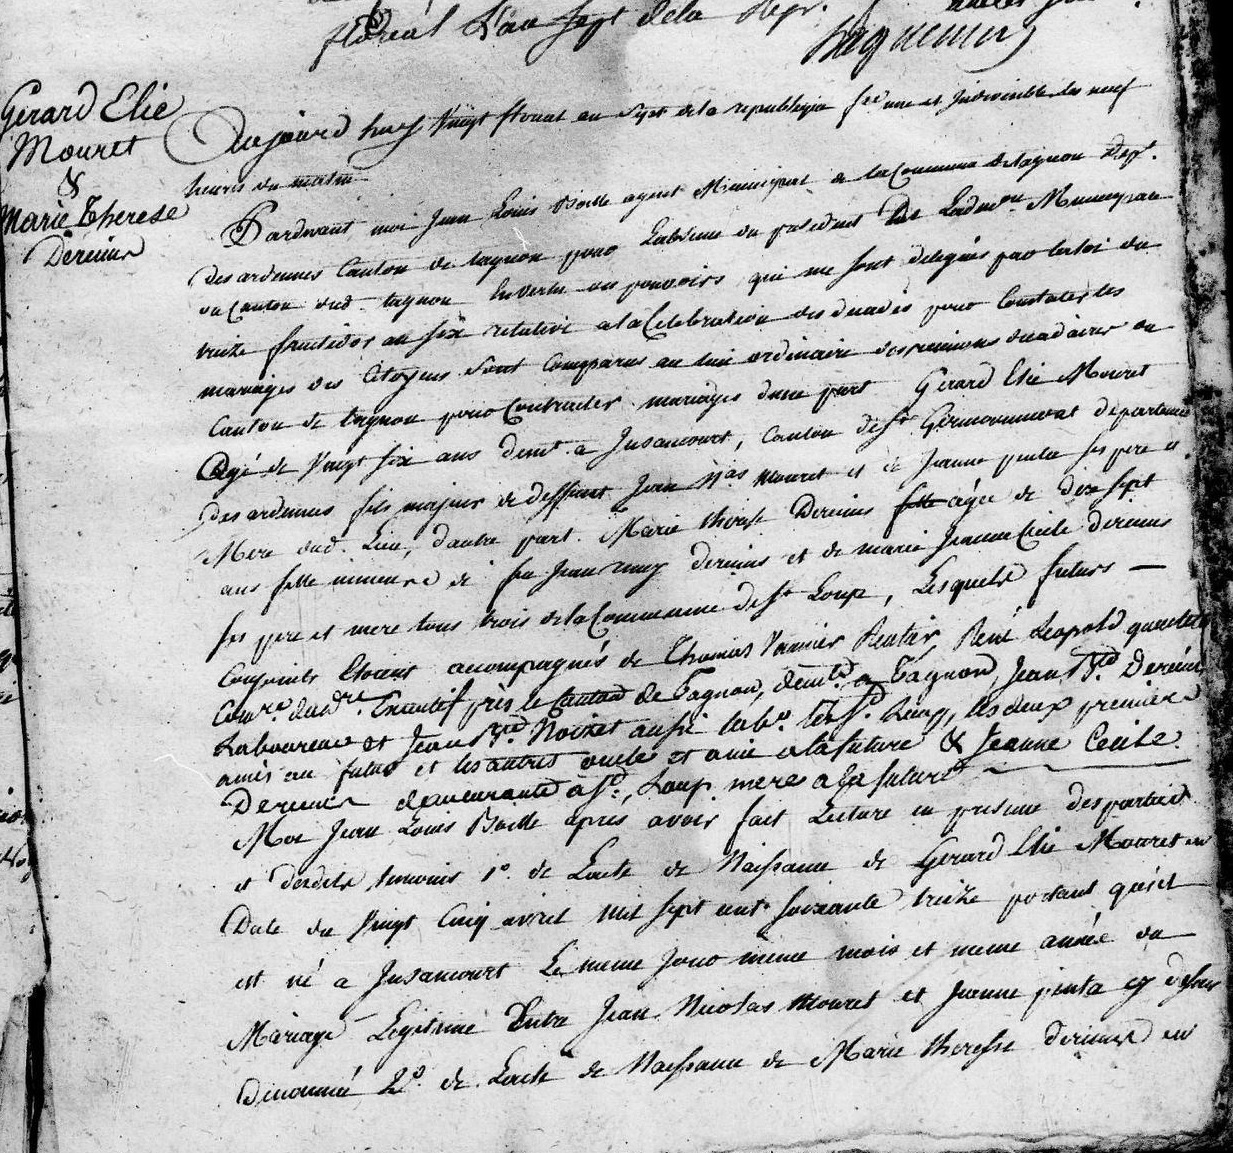 floréal L'an Sept dela Rep.
Gerard Elie
Mouret
&
Marie Therese
Deruins
Aujourd huy Vingt floreal an Sept de la republique fse une et Indivisible les neuf
heures du matin
Pardevant moi Jean Louis Boille agent Municipal de la Commune de tagnon Dept.
des ardennes Canton de tagnon pour Labsence du president de Ladmon Municipale
du Canton dud. tagnon En vertu des pouvoirs qui me sont delegués par la loi du
treize fructidor an six relative a la Celebration des decades pour Constater les
mariages des Citoyens Sont Comparus au lieu ordinaire des reunions decadaires du
Canton de tagnon pour Contracter mariages dune part Gerard Elie Mouret
Agé de Vingt six ans demt. a Jusancourt, Canton de St Germainmont departemt
des ardennes fils majeur de deffunt Jean Nas Mouret et de Jeanne pinta ses pere et
Mere dud. Lieu, d'autre part. Marie therese Deruins fille agée de dix sept
ans fille mineure de feu Jean remy deruins et de marie Jeanne Cecile deruins
ses pere et mere tous trois de la Commune de St Loup, Lesquels futurs —
Conjoints Etoient acompagnés de Thomas Vannier Rentier, René Leopold
Comre. du dre. Executif près le Canton de Tagnon, demts. a Tagnon, Jean Bte. Deruins
Laboureur et Jean Bte. Noizet aussi labr. St. Loup, les deux premiers
amis au futur et les autres oncle et ami a la future & Jeanne Cecile
Deruins demeurante a St. Loup mere a la future
Moi Jean Louis Boille apres avoir fait Lecture en presence des parties
et desdits temoins 1o. de Lacte de Naissance de Gerard Elie Mouret en
Date du Vingt Cinq avril mil sept cent soixante treize portant qu'il
est né a Jusancourt Le meme Jour meme mois et meme année du
Mariage Legitime Entre Jean Nicolas Mouret et Jeanne pinta cy dessus
Denommé 2o. de Lacte de Naissance de Marie theresse deruins en